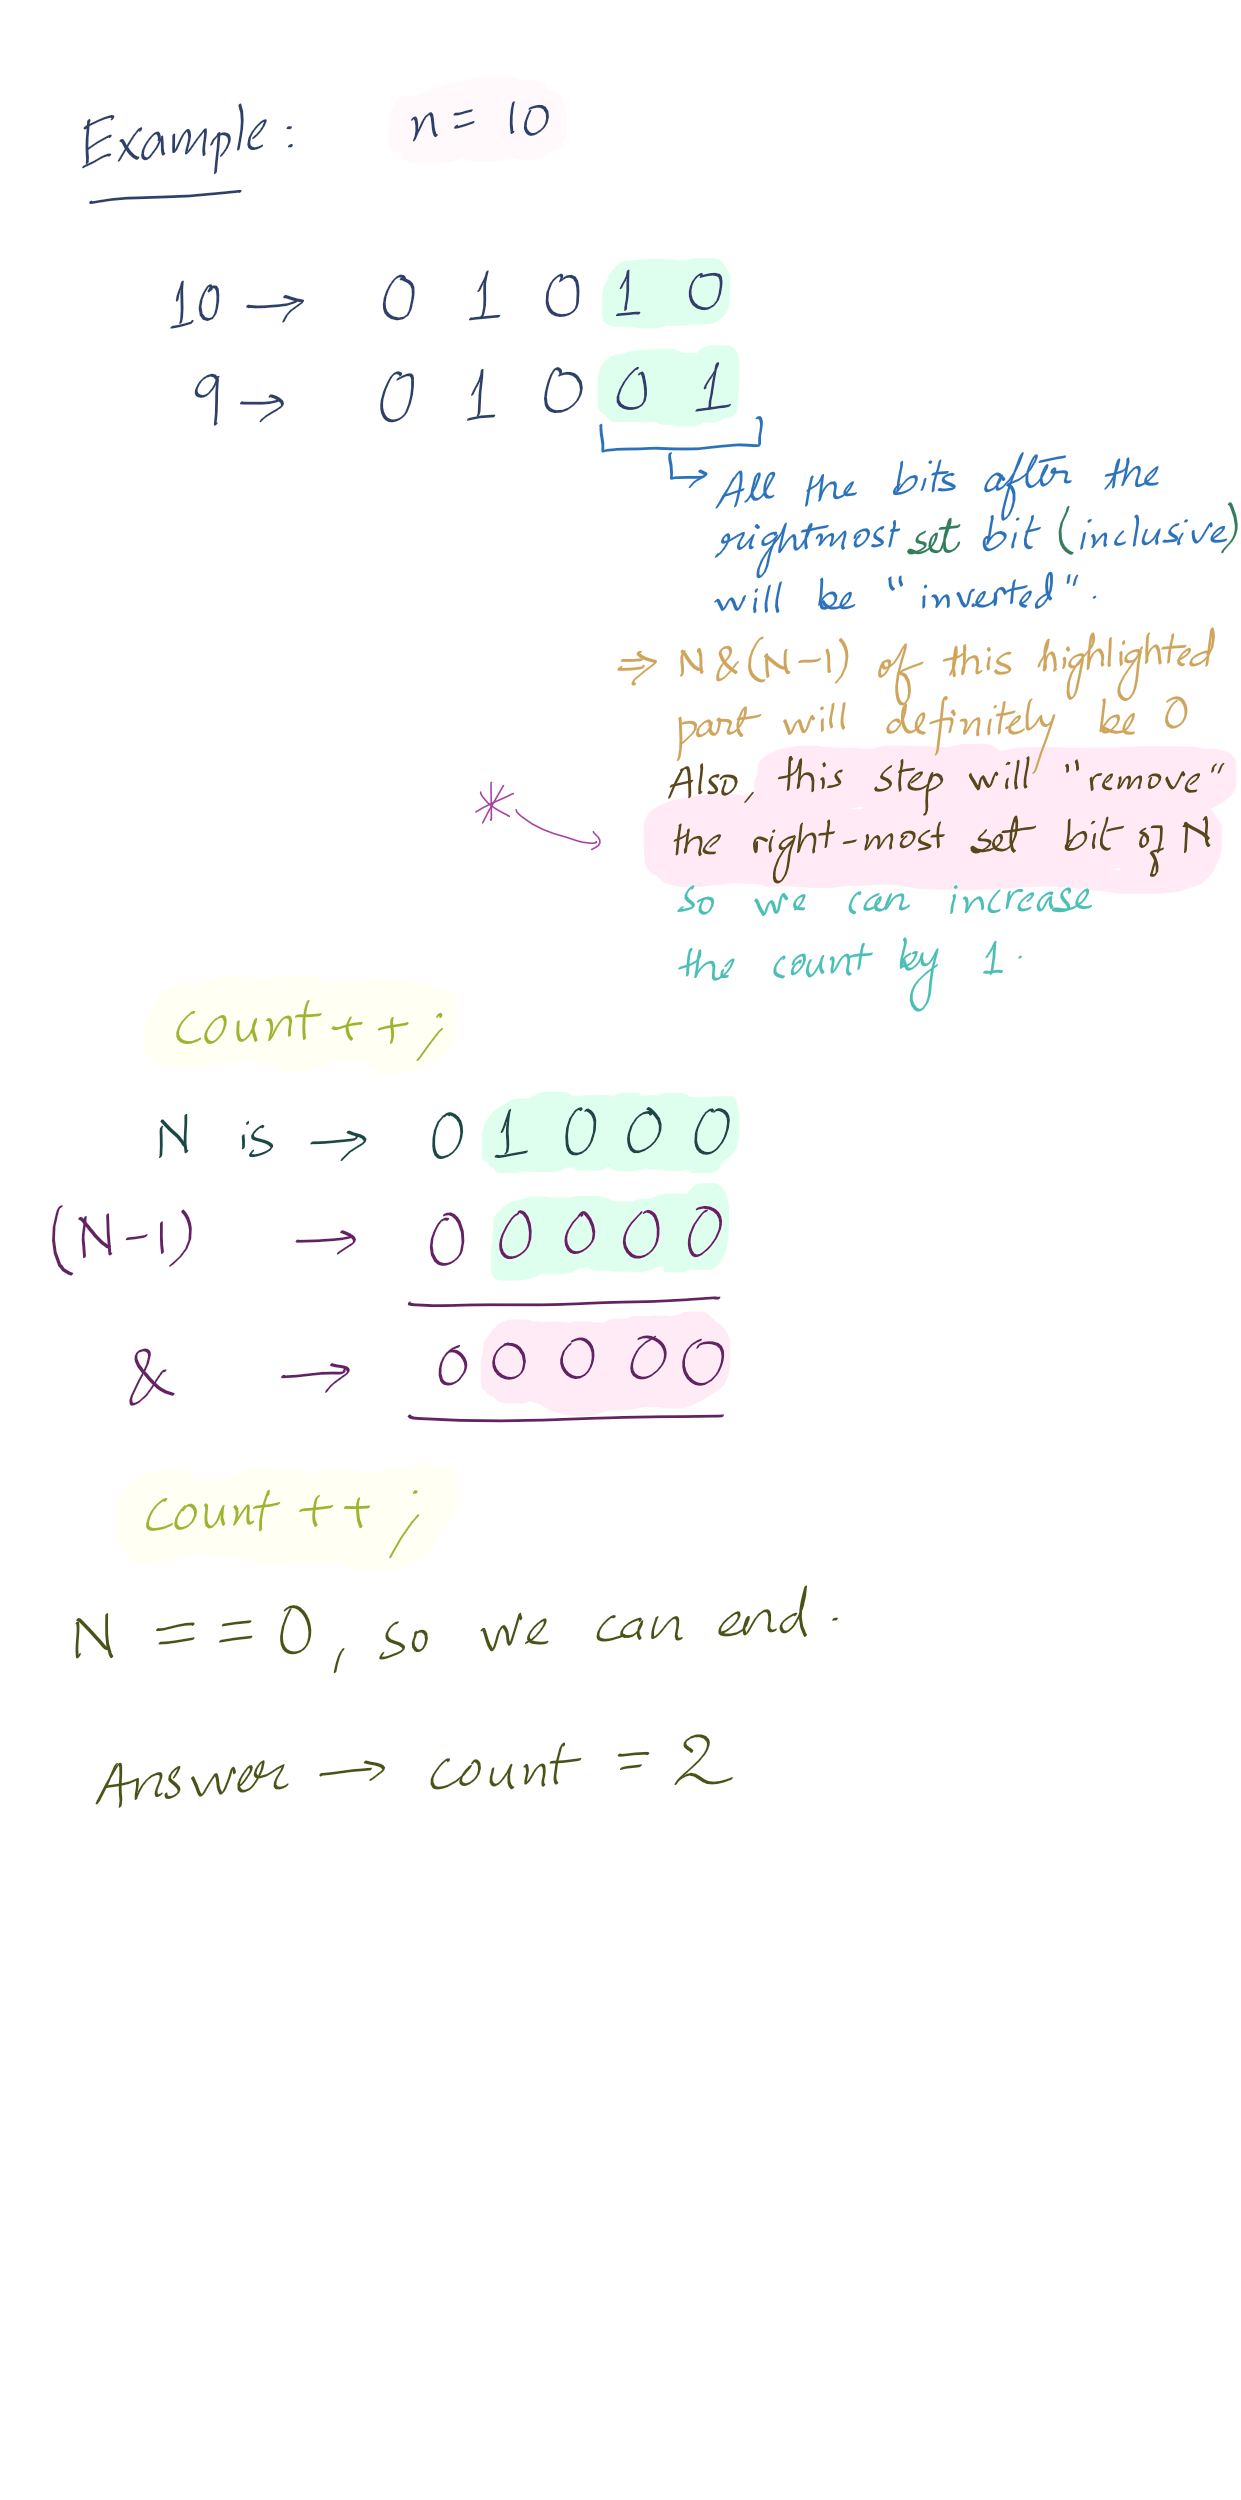 Example: n = 10
10 → 0 1 0 1 0
9 → 0 1 0 0 1
All the bits after the
rightmost set bit (inclusive)
will be "inverted".
⇒ N &(N-1) of this highlighted
part will definitely be 0
Also, this step will "remove"
* the right-most set bit of N
so we can increase
the count by 1.
Count++;
N is → 0 1 0 0 0
(N-1) → 0 0 0 0 0
& → 0 0 0 0 0
Count ++ ;
N == 0, so we can end.
Answer → count = 2